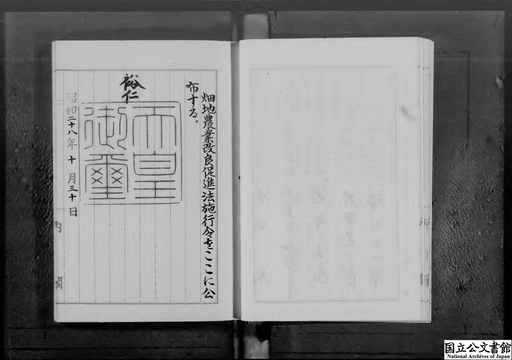 畑地農業改良促進法施行令をここに公
布する。
裕仁
天皇
御璽
昭和二十八年十月三十日
内閣
国立公文書館
National Archives of Japan